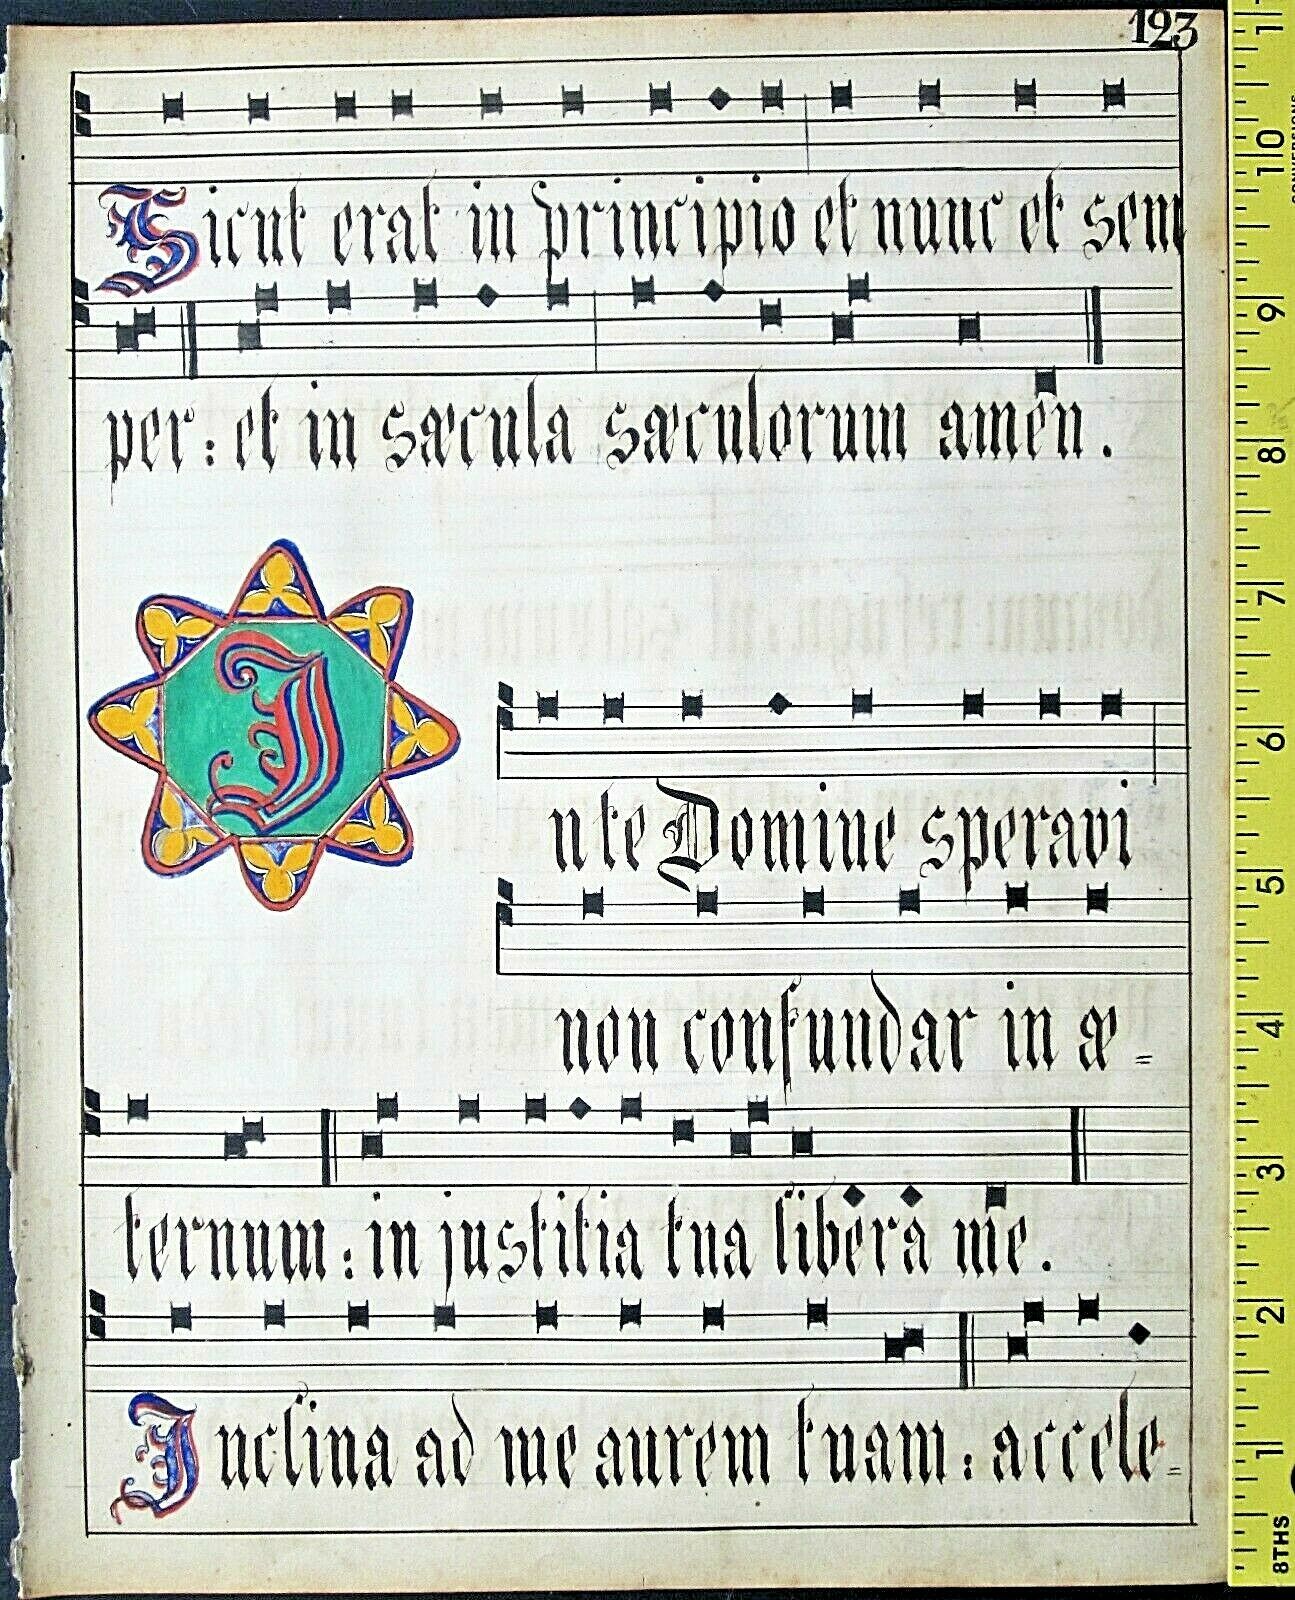 123
Sicut erat in principio et nunc et sem
per: et in sæcula sæculorum amen.
In te Domine speravi
non confundar in æ=
ternum: in justitia tua libera me.
Inclina ad me aurem tuam: accele=
CONVERSIONS
10
9
8
7
6
5
4
3
2
1
8THS